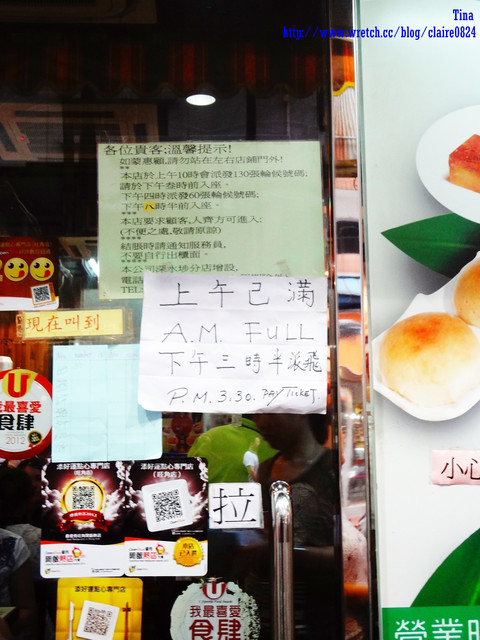 Tina
http://www.wretch.cc/blog/claire0824
各位貴客,溫馨提示!
如蒙惠顧,請勿站在左右店鋪門外!
本店於上午10時會派發130張輪候號碼;
請於下午叁時前入座。
下午四時派發60張輪候號碼;
下午八時半前入座。
本店要求顧客,人齊方可進入;
(不便之處,敬請原諒)
結賬時請通知服務員,
不要自行出櫃面。
本公司深水埗分店增設,
電話
TEL:
上午已滿
A.M. FULL
下午三時半派飛
P.M. 3.30. PAY TICKET.
現在叫到
U
我最喜愛
食肆
2012
添好運點心專門店
(旺角店)
添好運點心專門店
(旺角店)
開飯熱店
開飯熱店
拉
添好運點心專門店
U
我最喜愛
食肆
小心
營業時